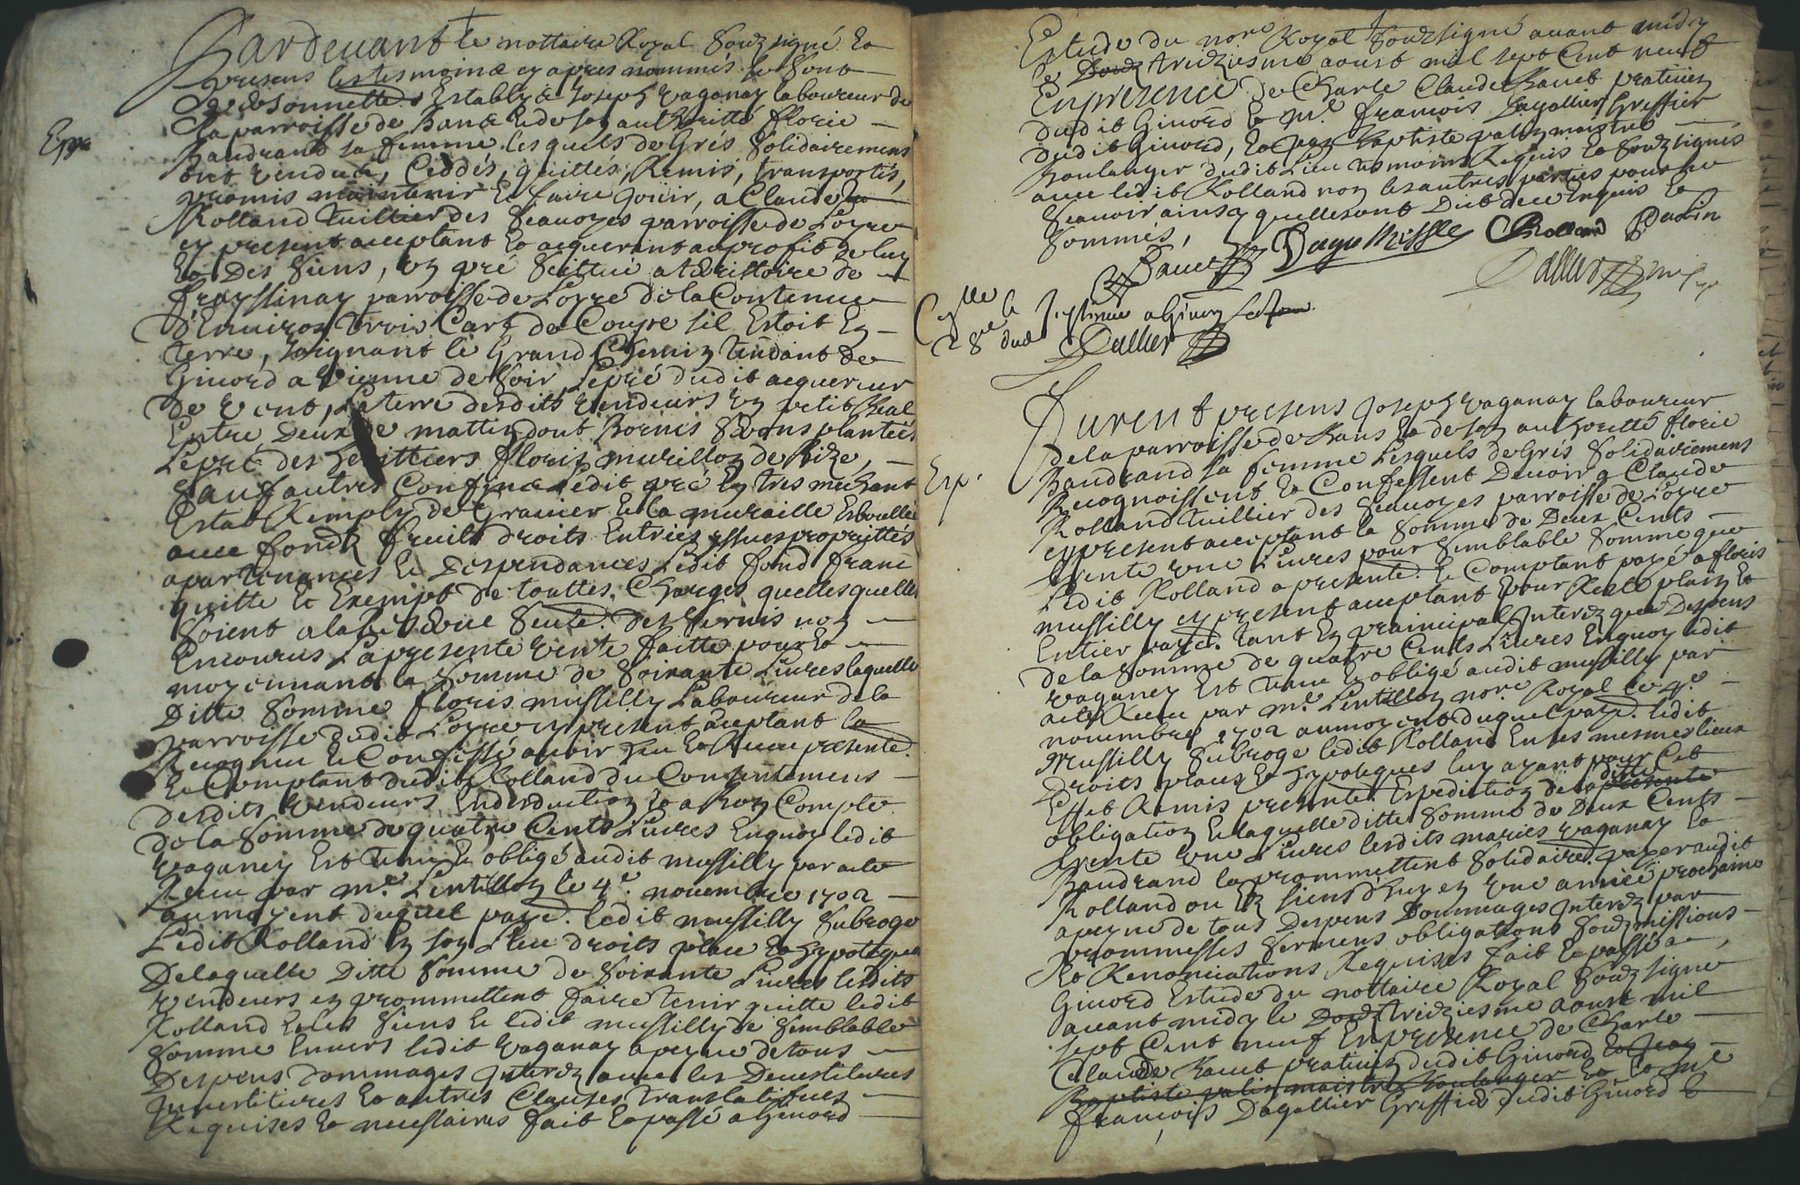 Pardevant le nottaire Royal Souzsigné Et
presens les tesmoins cy apres nommés se sont
personnellet. Establye Joseph vaganay laboureur de
la parroisse de Bans et de son authoritté florie
Baudrand sa femme lesquels de Gréz Solidairement
Expe
ont vendus, Ceddés, quittés, Remis, transportés,
promis maintenir Et faire Jouir, a Claude
Rolland tuillier des Seauoyes parroisse de Loyre
cy present acceptant Et acquerant au profit de luy
Et Des Siens, un pré Scittué a territoire de
frayssinay parroisse de Loyre de la Contenue
d'Enuiron trois Cart de Coupe sil Estoit En
terre, Joignant le Grand Chemin tendant de
Giuord a Vienne de Soir, Le pré dudit acquereur
de vent, La terre desdits vendeurs un petit
Entre Deux de mattin dont Bornes Seront plantées
Le pré des heritiers floris murillon de bize,
Sauf autres Confins Ledit pré En tres mechant
Estat Remply de Grauier Et la muraille Esboullee
auec fondz fruits droits Entrées yssues propriettés
apartenances Et Despendances Ledit fond franc
quitte Et Exempt de touttes Charges quelles quelles
Soient a la Seruis non
Encourus La presente vente faitte pour Et
moyennant la Somme de Soixante Liures laquelle
Ditte Somme floris mussilly Laboureur de la
parroisse dudit Loyre cy present acceptant la
Recognu Et Confessé auoir Receu presente.
Et Comptant dudit Rolland du Consentement
desdits vendeurs En deduction Et a bon Compte
de la Somme de quatre Cents Liures Enquoy ledit
vaganey Est tenu Et obligé audit mussilly par acte
Receu par me. Lentillon le 4e. nouembre 1702
au moyent duquel paye. ledit mussilly Subroge
Ledit Rolland En son Lieu droits place Et hypoteque
De laquelle Ditte Somme de Soixante Liures lesdits
vendeurs en promettent faire tenir quitte ledit
Rolland Et les Siens Et ledit mussilly de Semblable
Somme Enuers ledit vaganay a peyne de tous
Despens dommages Interez auec les Deuestitures
Inuestitures Et autres Clauses translatiues
Requises Et necessaires fait Et passé a Giuord
Estude du nore. Royal Souzsigné auant midy
le treiziesme aoust mil sept Cent neuf
En presence de Charle Claude Bauet praticien
dudit Giuord Et Me. francois Dagallier Greffier
dudit Giuord, Et Jean Baptiste patin maistre
Boulanger dudit Lieu tesmoins Requis Et Souzsignés
auec ledit Rolland non les autres parties pour ne
Scauoir ainsy quelles ont Dit de ce Enquis Et
Sommés,
Bauet Dagallier CRolland Patin
Dallier
Dallier
Furent presens Joseph vaganay laboureur
de la parroisse de Bans Et de son authoritté florie
Baudrand sa femme Lesquels de Gréz Solidairement
Exp.
Recognoissent Et Confessent Deuoir a Claude
Rolland tuillier des Seauoyes parroisse de Loyre
cy present acceptant la Somme de Deux Cents
trente une Liures pour Semblable Somme que
Ledit Rolland a presente. Et Comptant payé a floris
mussilly cy present acceptant pour Reste plain Et
Entier paye. tant En prainsipal Interez que Despens
de la Somme de quatre Cents Liures Enquoy ledit
vaganey Est tenu Et obligé audit mussilly par
acte Receu par Me. Lentillon nore. Royal le 4e.
nouembre 1702 au moyent duquel paye. ledit
Mussilly Subroge ledit Rolland En ses mesmes lieux
Droits places Et hypoteques luy ayant pour Cet
Effet Remis presente. Expedition de laditte
obligation Et laquelle ditte Somme de Deux Cents
trente une Liures lesdits mariés vaganay Et
Baudrand la promettent Solidaire. payer audit
Rolland ou Es siens d'huy en une année prochaine
a peyne de tous Despens Dommages Interez par
prommesses Sermens obligations Souzmissions
Et Renonciations Requises fait Et passé a
Giuord Estude du nottaire Royal Souzsigné
auant midy le treiziesme aoust mil
sept Cent neuf En presence de Charle
Claude Bauet praticien dudit Giuord Et Jean
Baptiste patin maistre Boulanger Et Me
francois Dagallier Greffier dudit Giuord Et